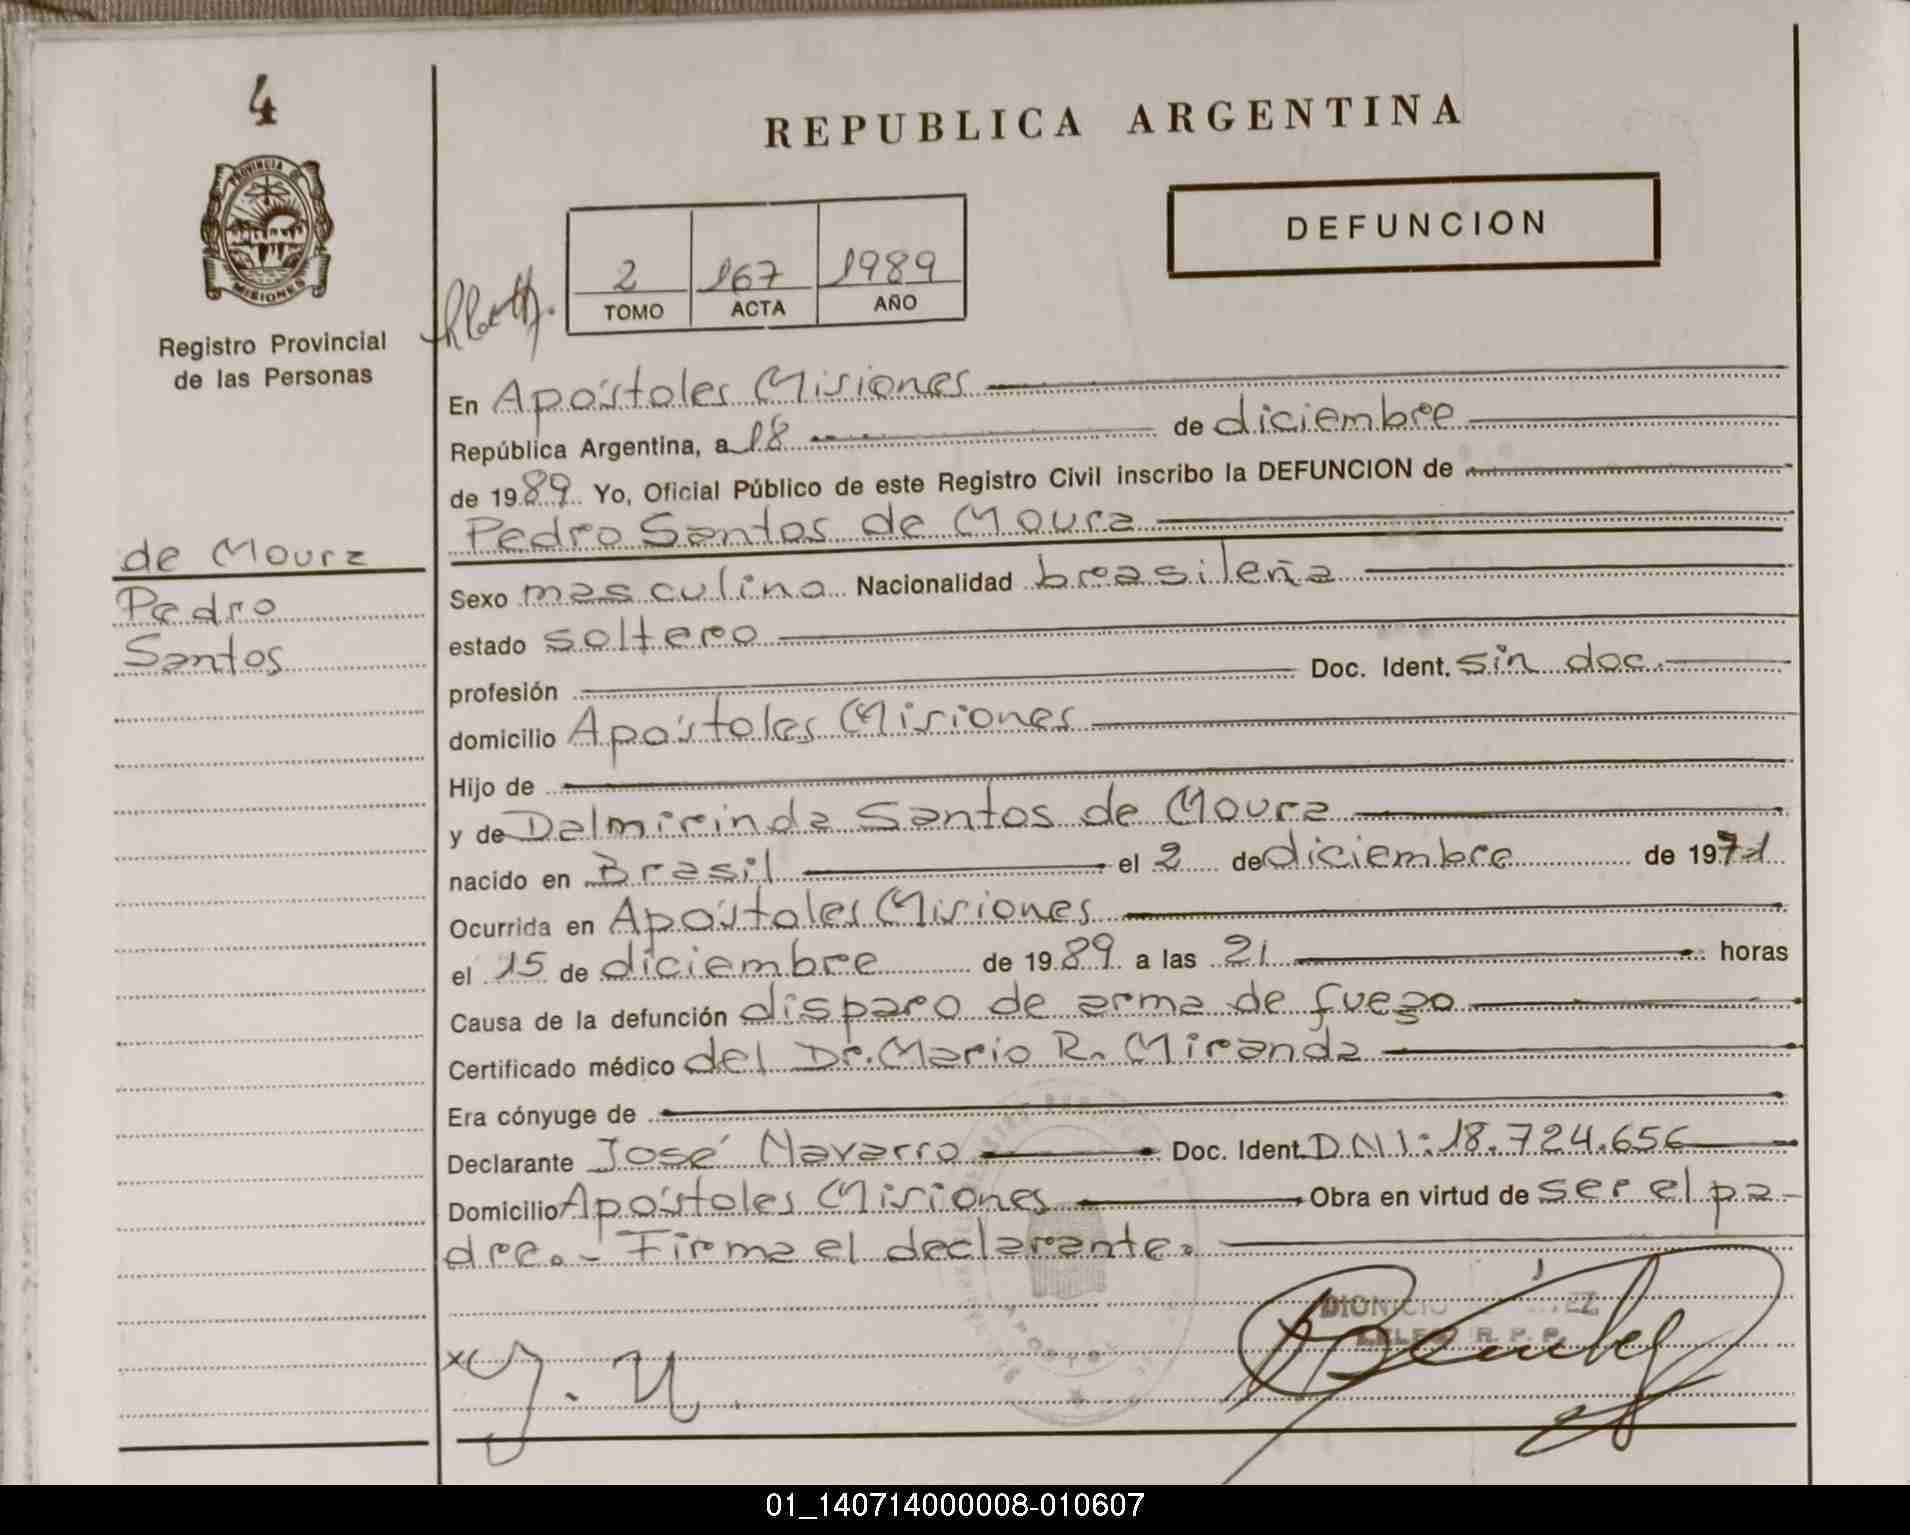 4
REPUBLICA ARGENTINA
PROVINCIA DE
MISIONES
Registro Provincial
de las Personas
DEFUNCION
2 167 1989
TOMO ACTA AÑO
En Apóstoles Misiones
República Argentina, a 18 de diciembre
de 1989. Yo, Oficial Público de este Registro Civil inscribo la DEFUNCION de
Pedro Santos de Moura
de Moura
Pedro
Santos
Sexo masculino Nacionalidad brasileña
estado soltero
profesión Doc. Ident. sin doc.
domicilio Apóstoles Misiones
Hijo de
y de Dalmirinda Santos de Moura
nacido en Brasil el 2 de diciembre de 1971
Ocurrida en Apóstoles Misiones
el 15 de diciembre de 1989 a las 21 horas
Causa de la defunción disparo de arma de fuego
Certificado médico del Dr. Mario R. Miranda
Era cónyuge de
Declarante José Navarro Doc. Ident. D.N.I.: 18.724.656
Domicilio Apóstoles Misiones Obra en virtud de ser el pa-
dre.- Firma el declarante.
DIONICIO
R. P. P.
x J. N.
01_140714000008-010607